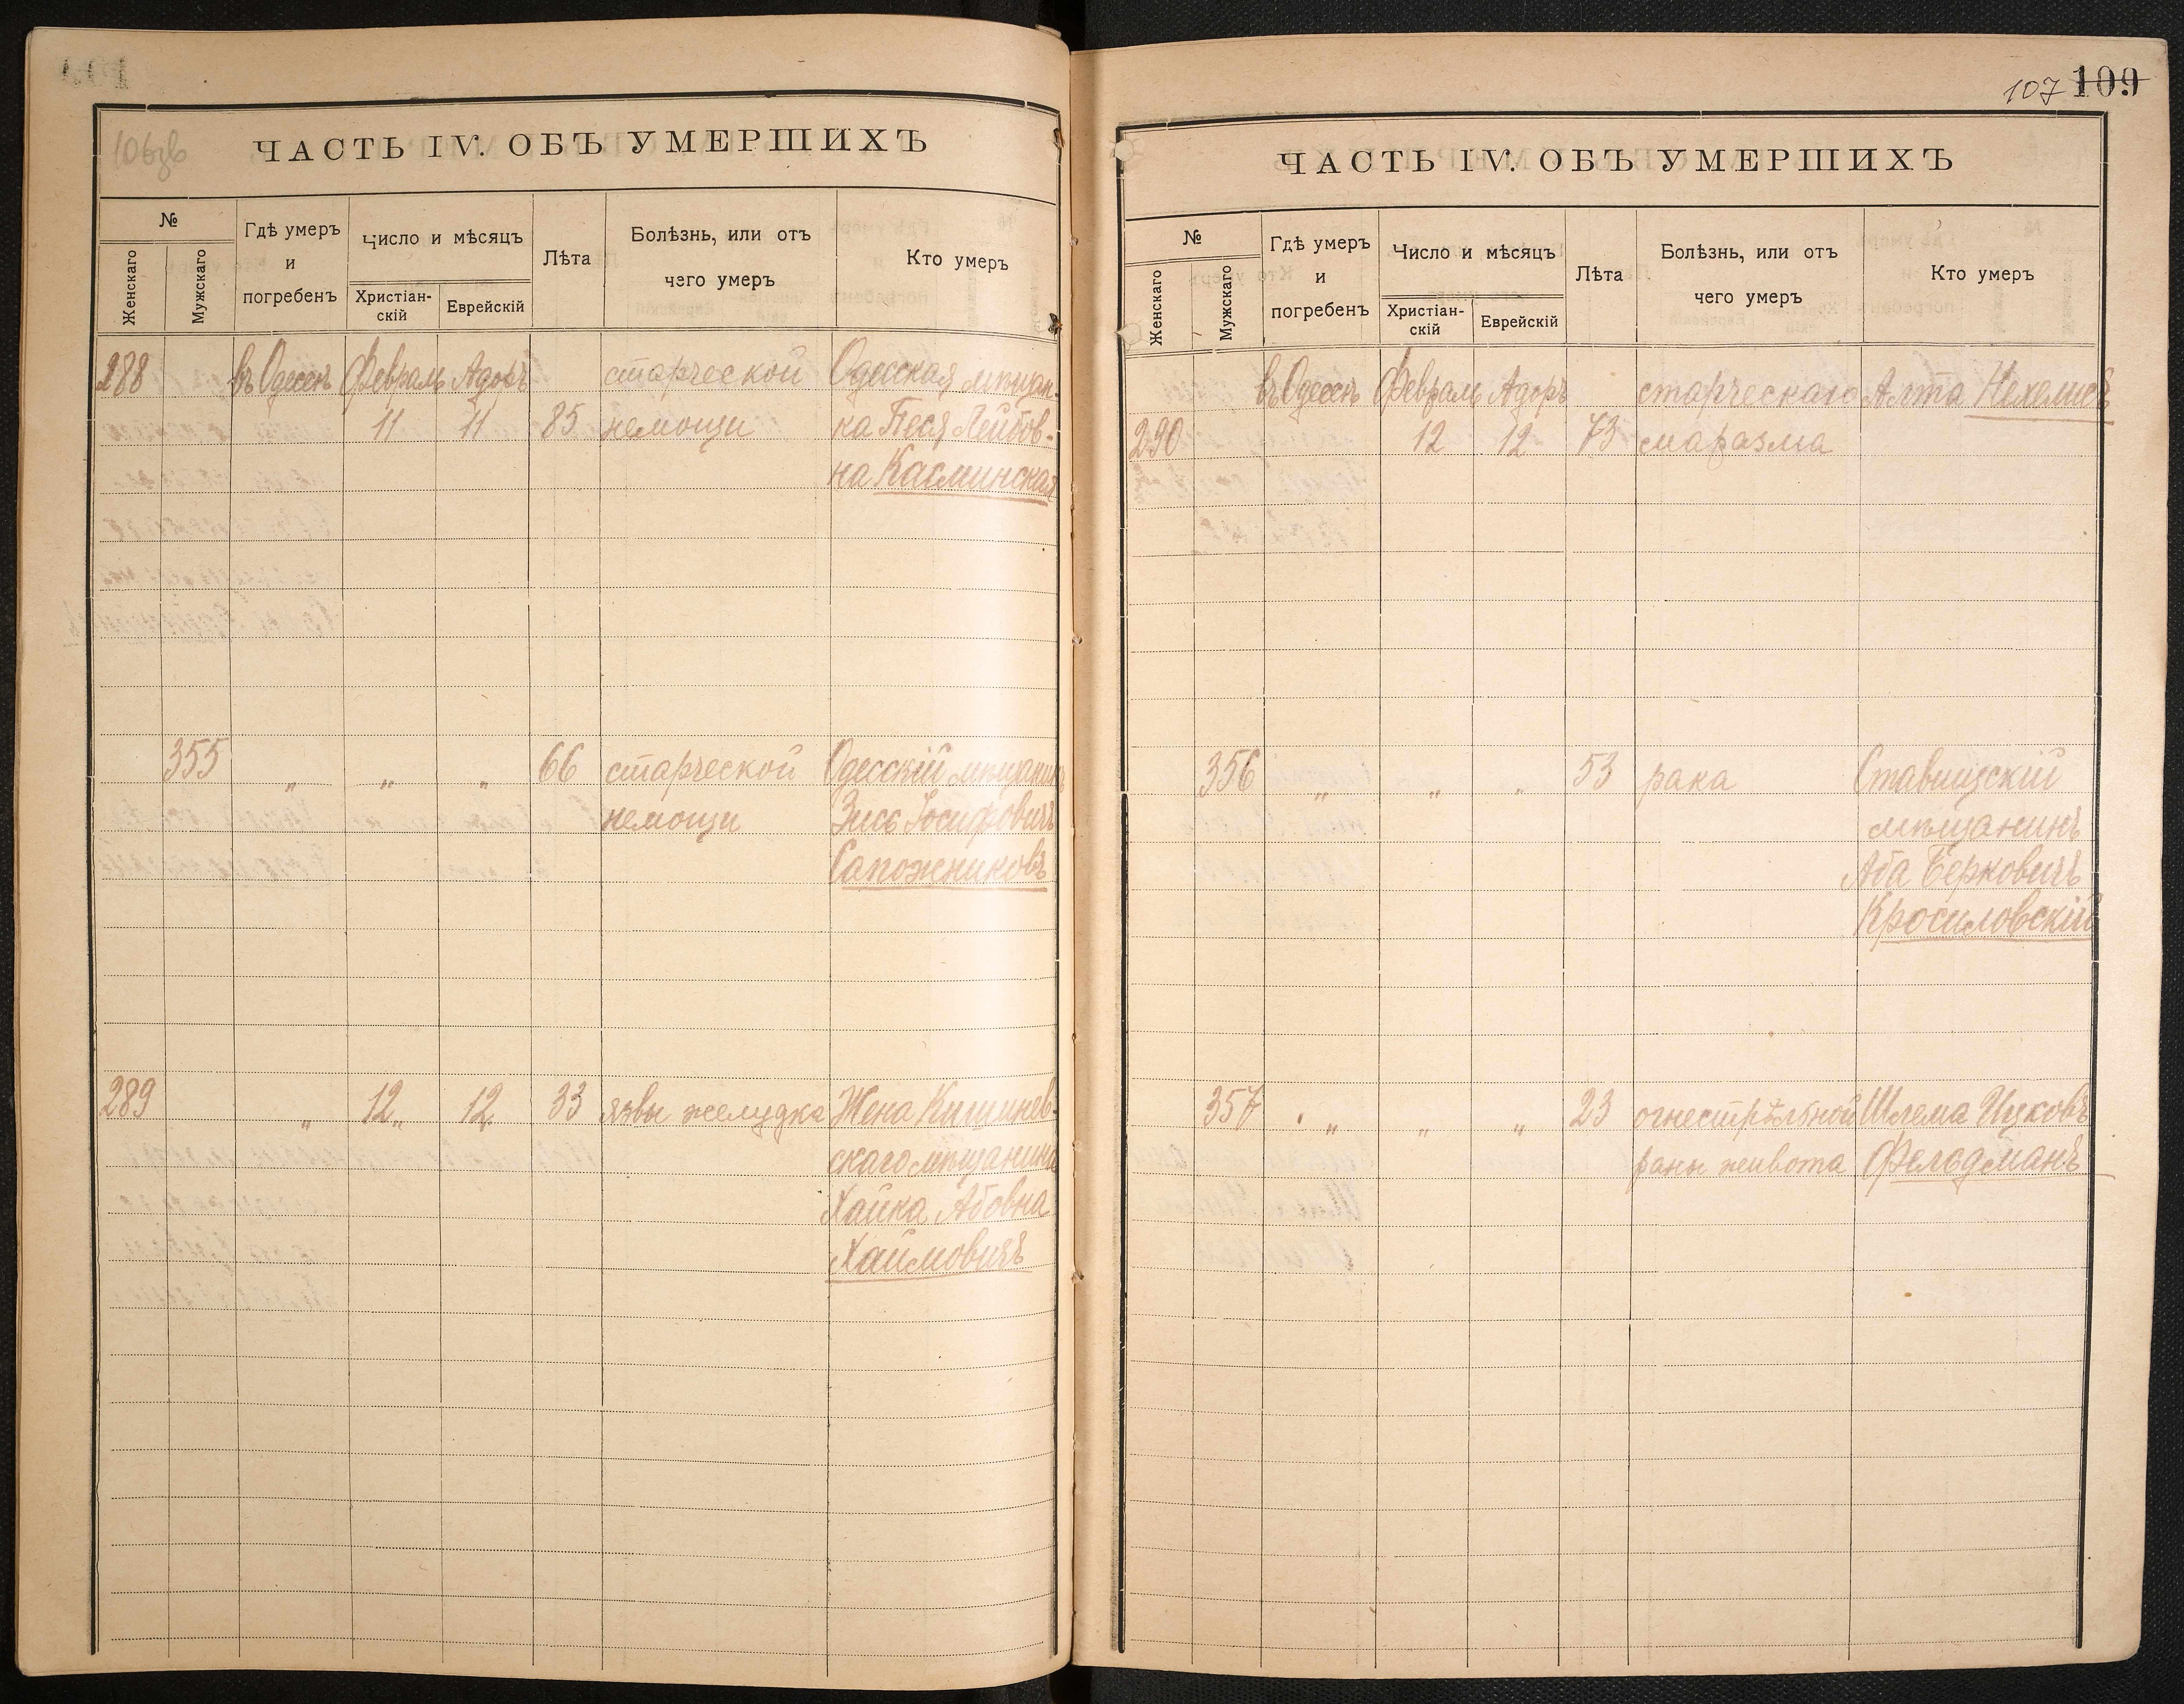 106зв
ЧАСТЬ IV. ОБЪ УМЕРШИХЪ
№
Женскаго
Мужскаго
Гдѣ умеръ
и
погребенъ
Число и мѣсяцъ
Христіан-
скій
Еврейскій
Лѣта
Болѣзнь, или отъ
чего умеръ
Кто умеръ
288 въ Одессѣ Февраль Адоръ старческой Одесская мѣщан-
11 11 85 немощи ка Песя Лейбов-
на Касминская
355 „ „ „ 66 старческой Одесскій мѣщанинъ
немощи Зисъ Іосифовичъ
Сапожниковъ
289 „ 12„ 12„ 33 язвы желудка Жена Кишинев-
скаго мѣщанина
Хайка Абовна
Хаймовичъ
107 109
ЧАСТЬ IV. ОБЪ УМЕРШИХЪ
№
Женскаго
Мужскаго
Гдѣ умеръ
и
погребенъ
Число и мѣсяцъ
Христіан-
скій
Еврейскій
Лѣта
Болѣзнь, или отъ
чего умеръ
Кто умеръ
въ Одессѣ Февраль Адоръ старческаго Алта Нехелисъ
290 12 12 73 маразма
356 „ „ „ 53 рака Ставищскій
мѣщанинъ
Аба Берковичъ
Кросиловскій
357 „ „ „ 23 огнестрѣльной Шлема Ицковъ
раны живота Фельдманъ